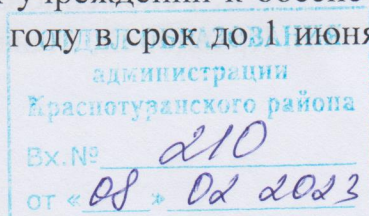 учреждений к
году в срок до 1 июня
администрации
Краснотузанского района
Вх.№ 210
от «08» 02 2023